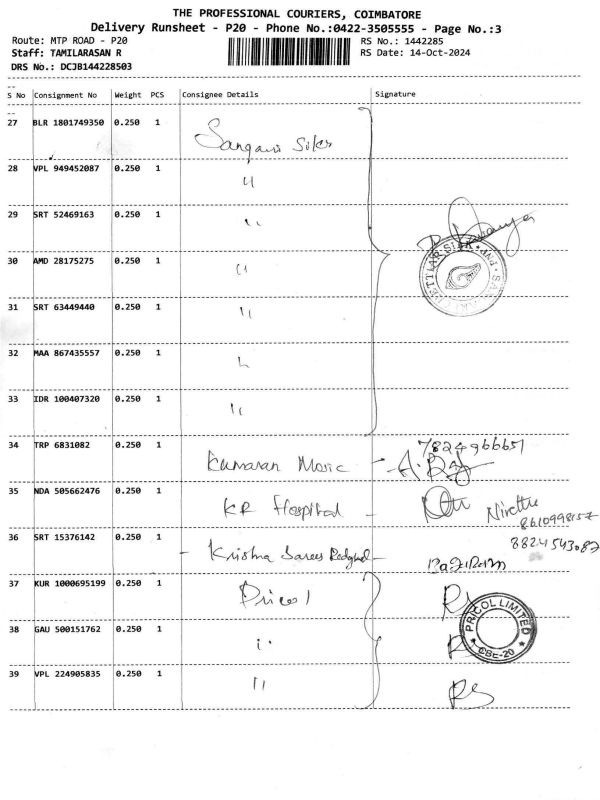 THE PROFESSIONAL COURIERS, COIMBATORE
Delivery Runsheet - P20 - Phone No.:0422-3505555 - Page No.:3
Route: MTP ROAD - P20 RS No.: 1442285
Staff: TAMILARASAN R RS Date: 14-Oct-2024
DRS No.: DCJB144228503
S No Consignment No Weight PCS Consignee Details Signature
27 BLR 1801749350 0.250 1 Silks
28 VPL 949452087 0.250 1 "
29 SRT 52469163 0.250 1 "
30 AMD 28175275 0.250 1 "
31 SRT 63449440 0.250 1 "
32 MAA 867435557 0.250 1 "
33 IDR 100407320 0.250 1 "
34 TRP 6831082 0.250 1 Kumaran 7824966651
35 NDA 505662476 0.250 1 KR Hospital
36 SRT 15376142 0.250 1 Krishna Sarees
37 KUR 1000695199 0.250 1 Pricol RS
PRICOL LIMITED
CBE-20
38 GAU 500151762 0.250 1 "
39 VPL 224905835 0.250 1 " RS